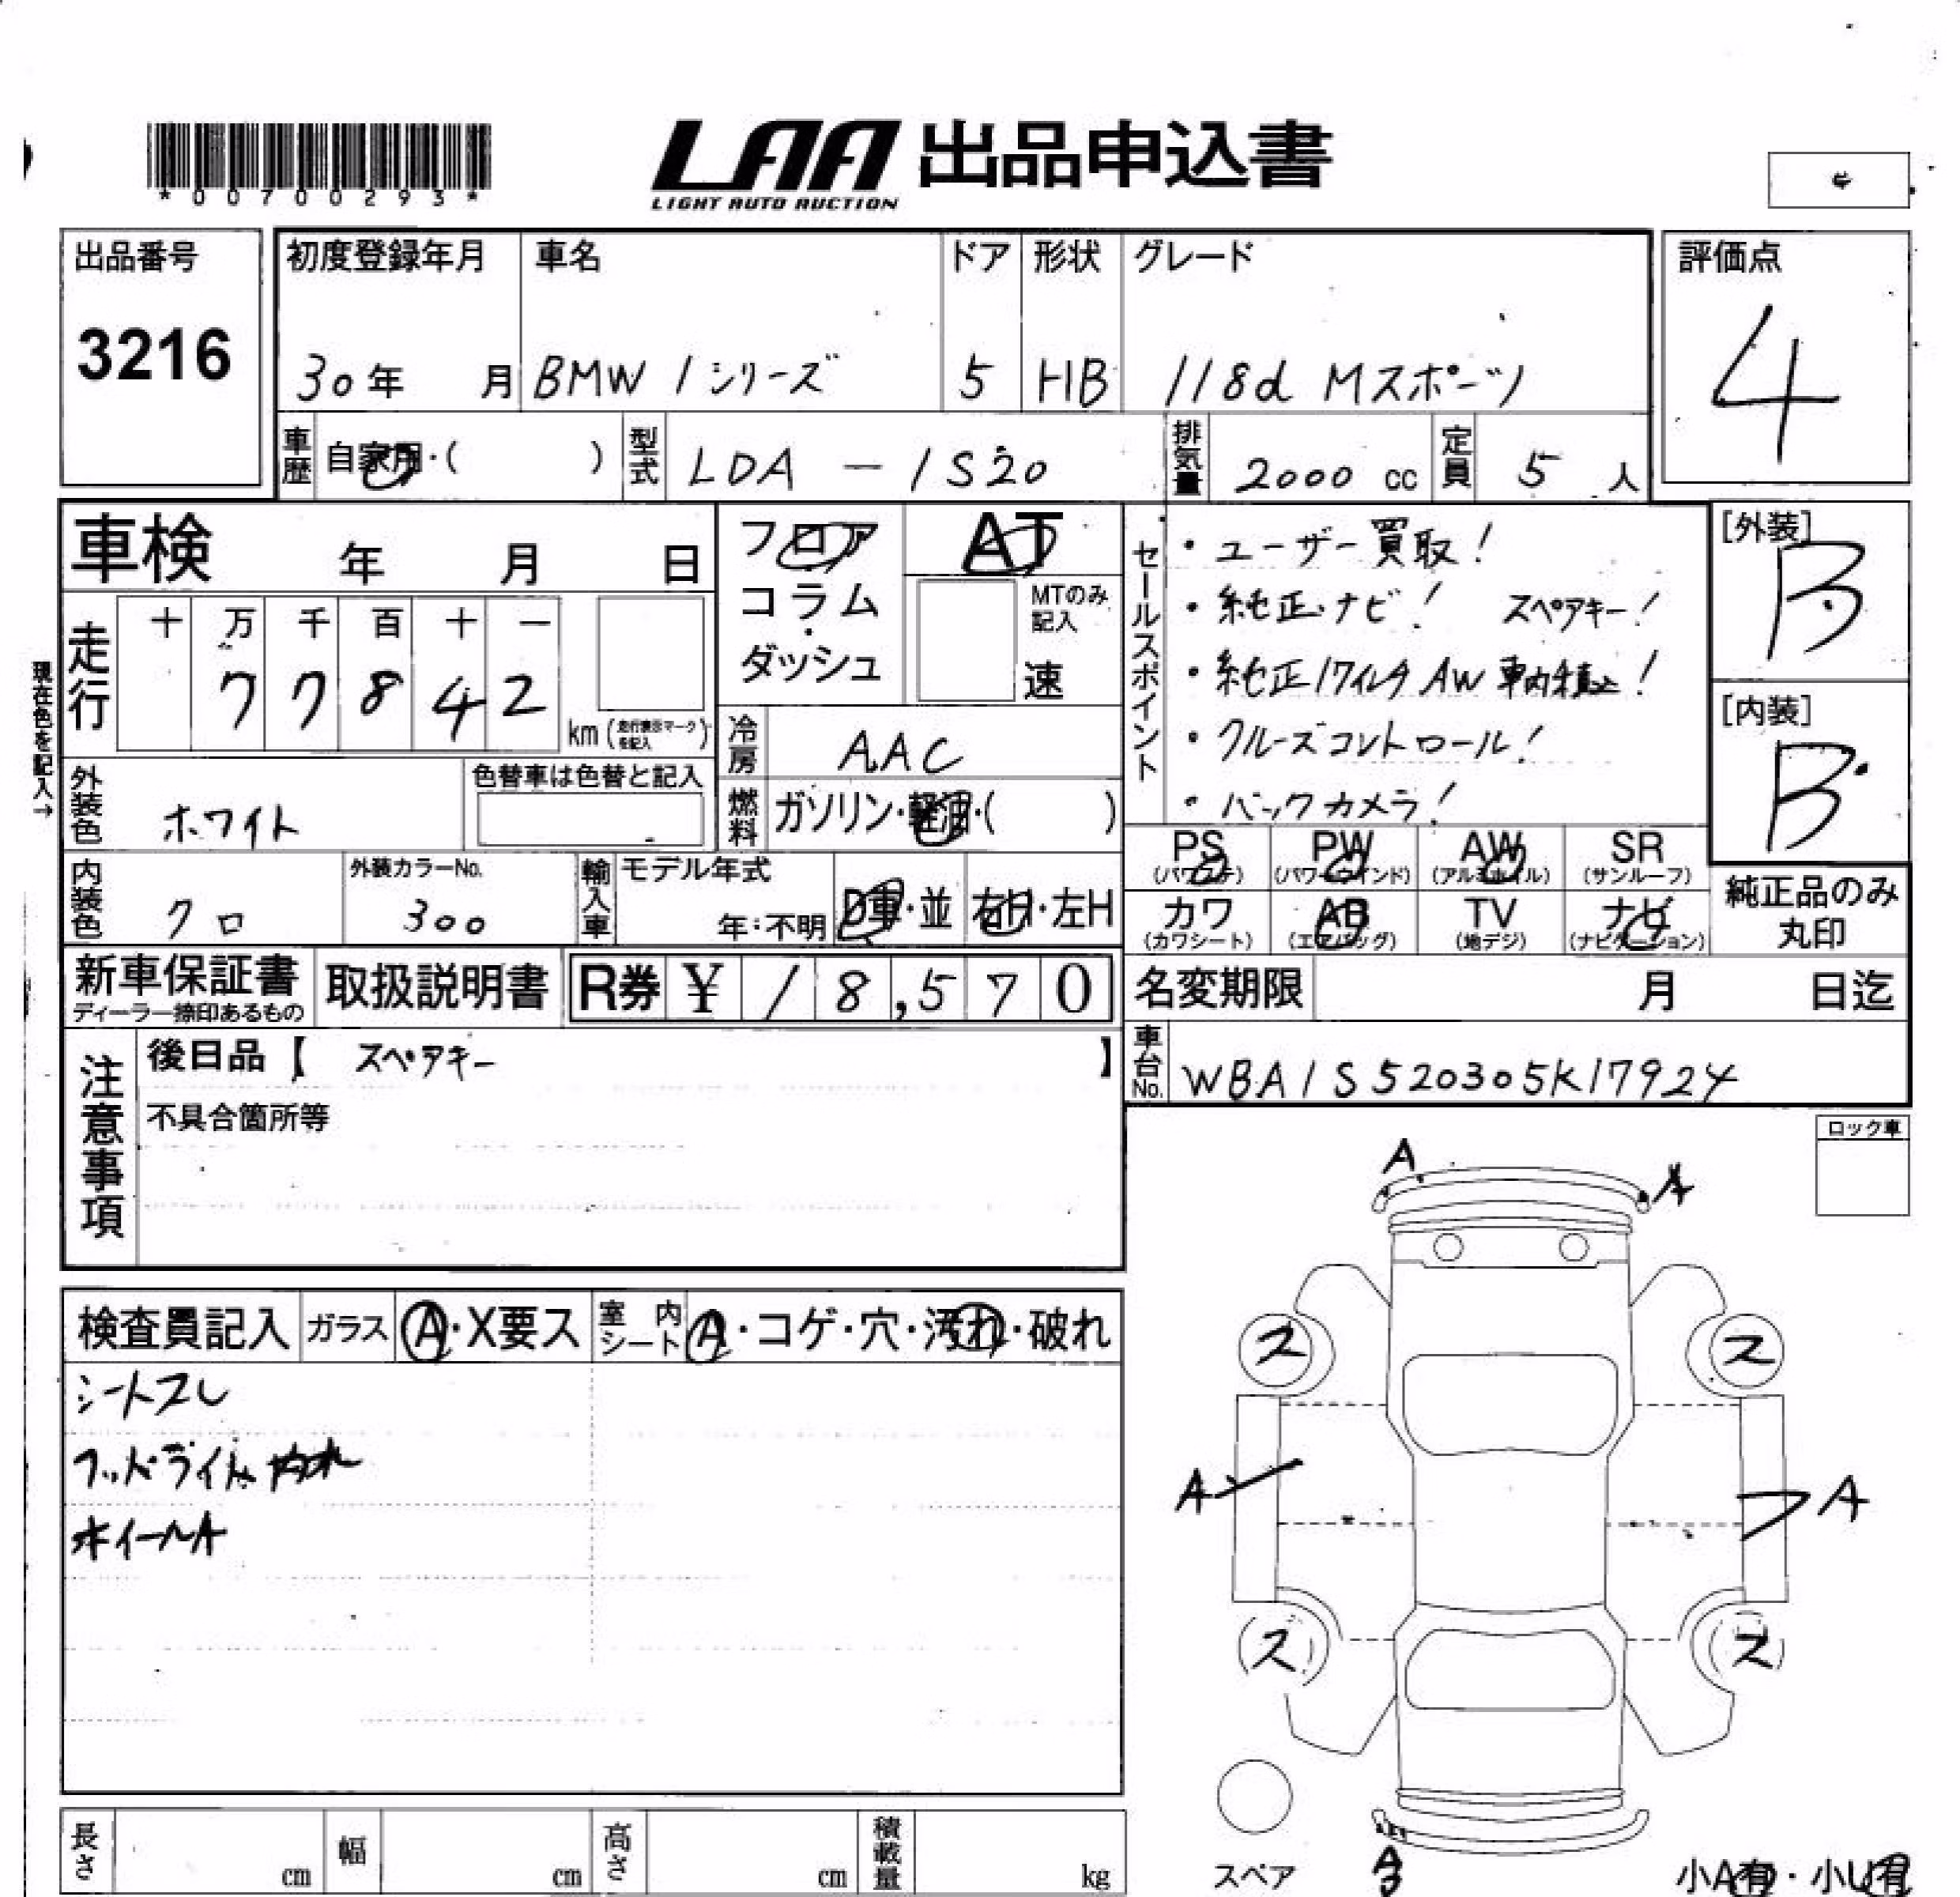 *00700293*
LAA 出品申込書
LIGHT AUTO AUCTION
出品番号
3216
初度登録年月 車名 ドア 形状 グレード
30年 月 BMW 1シリーズ 5 HB 118d Mスポーツ
評価点
4
車歴 自家用・( ) 型式 LDA-1S20 排気量 2000 cc 定員 5 人
車検 年 月 日
フロア AT
コラム・ダッシュ
MTのみ記入
速
セールスポイント
・ユーザー買取!
・純正ナビ! スペアキー!
・純正17インチAW 車内積込!
・クルーズコントロール!
・バックカメラ!
[外装]
B
[内装]
B
現在色を記入→
走行 十 万 千 百 十 一
77842
km (走行表示マークを記入)
冷房 AAC
外装色 ホワイト
色替車は色替と記入
燃料 ガソリン・軽油・( )
内装色 クロ
外装カラーNo.
300
輸入車 モデル年式
年:不明 D車・並 右H・左H
PS (パワステ)
PW (パワーウインド)
AW (アルミホイル)
SR (サンルーフ)
カワ (カワシート)
AB (エアバッグ)
TV (地デジ)
ナビ (ナビゲーション)
純正品のみ
丸印
新車保証書
ディーラー捺印あるもの
取扱説明書
R券 ¥ 18,570
名変期限 月 日迄
車台No. WBA1S520305K17924
注意事項
後日品【 スペアキー 】
不具合箇所等
ロック車
検査員記入 ガラス A・X要ス 室内シート A・コゲ・穴・汚れ・破れ
シートスレ
ホイールA
A
A
ス ス
A A
ス ス
スペア
A
小A有・小U有
長さ cm 幅 cm 高さ cm 積載量 kg